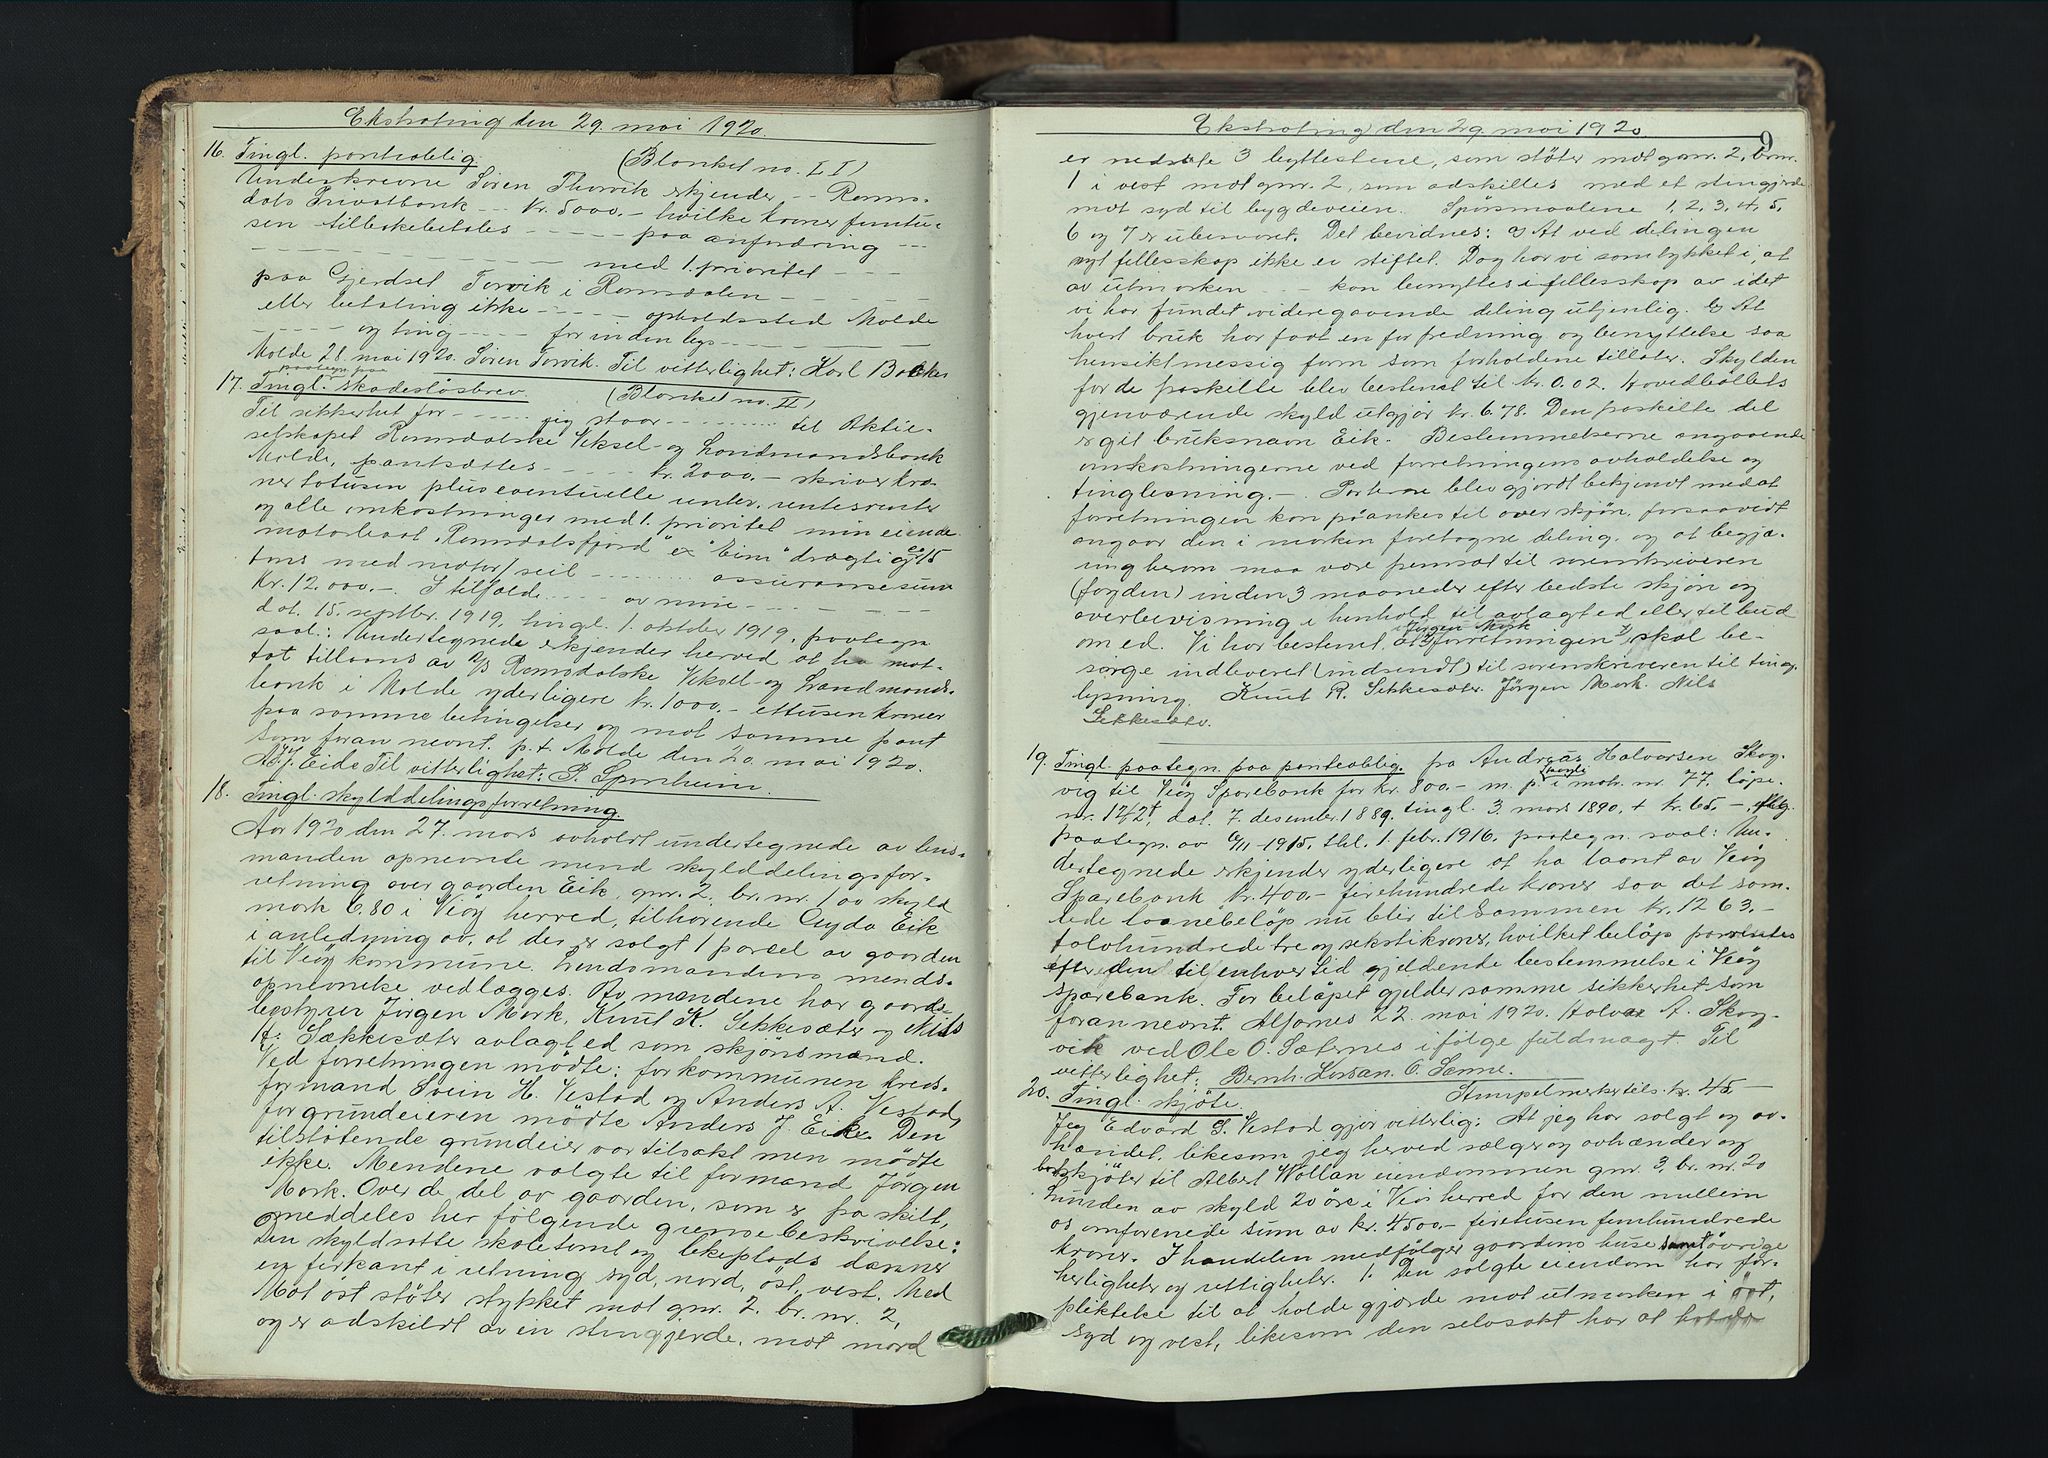 Ekstrating den 29. mai 1920.
16. Tingl. panteoblig. (Blanket no. II)
Underskrevne Søren Thorvik erkjender -- Roms-
dals Privatbank -- kr. 5000.- hvilke kroner femtu-
sen tilbakebetales ----- paa anfordring ---
---------- med 1. prioritet ----
paa Gjerdset Torvik i Romsdalen -----
eller betaling ikke ----- opholdssted Molde
----- og ting ----- forinden lags -----
Molde 28. mai 1920. Søren Torvik. Til vitterlighet: Karl Bakke
paategn. paa
17. Tingl. skadesløsbrev (Blanket no. II)
Til sikkerhet for ----- jeg staar ----- til Aktie-
selskapet Romsdalske Veksel- og Landmandsbank
Molde, pantsættes ----- kr. 2000.- skriver kro-
ner totusen plus eventuelle renter, rentesrenter
og alle omkostninger med 1. prioritet min eiende
motorbaat "Romsdalsfjord" ex "Eim" drægtig ca 15
tons med motor/seil ----- assuransesum
kr. 12.000.-. I tilfælde ----- av mine -----
dat. 15. septbr. 1919, tingl. 1. oktober 1919, paategn.
saal.: Undertegnede erkjender herved at ha mot-
tat tillaans av A/S Romsdalske Veksel- og Landmands-
bank i Molde yderligere kr. 1000.- ettusen kroner
paa samme betingelser og mot samme pant
som foran nevnt. p.t. Molde den 20. mai 1920.
A. J. Eide Til vitterlighet: P. Sponheim.
18. Tingl. skylddelingsforretning.
Aar 1920 den 27. mars avholdt undertegnede av lens-
manden opnevnte mend skylddelingsfor-
retning over gaarden Eik, gnr. 2, br. nr. 1 av skyld
mark 6.80 i Veöy herred, tilhørende Guda Eik
i anledning av, at der er solgt 1 parsel av gaarden
til Veöy kommune. Lensmandens mends-
opnevnelse vedlægges. Av mændene har gaard-
bestyrer Jörgen Mork, Knut K. Sekkesæter og Nils
K. Sækkesæter avlagt ed som skjönsmænd.
Ved forretningen mødte: for kommunen kreds-
formand Svein H. Vestad og Anders A. Vestad,
for grundeieren mødte Anders J. Eik. Den
tilstøtende grundeier var tilsakt men mødte
ikke. Mendene valgte til formand Jörgen
Mork. Over de del av gaarden, som er fraskilt,
meddeles her følgende grensebeskrivelse:
Den skyldsatte skoletomt og likeplads danner
en firkant i retning syd, nord, öst, vest. Med
Mot öst støter stykket mot gnr. 2. br. nr. 2,
og er adskildt av en stengjerde, mot nord
Ekstrating den 29 mai 1920 9
er nedsatte 3 byttestene, som støter mot gnr. 2, brnr.
1 i vest mot gnr. 2, som adskilles med et stengjerde
mot syd til bygdeveien. Spörsmaalene 1, 2, 3, 4, 5,
6 og 7 er ubesvaret. Det bevidnes: a) At ved delingen
nyt fellesskap ikke er stiftet. Dog har vi samtykket i, at
av utmarken --- kan benyttes i fellesskap av idet
vi har fundet videregaaende deling utjenlig. b) At
hvert bruk har faat en forfredning og benyttelse saa
hensiktmessig form som forholdene tillater. Skylden
for de fraskilte blev bestemt til kr. 0.02. Hovedbölets
gjenværende skyld utgjør kr. 6.78. Den fraskilte del
er git bruksnavn Eik. Bestemmelserne angaaende
omkostningerne ved forretningens avholdelse og
tinglesning. -. Parterne blev gjordt bekjendt med at
forretningen kan påankes til overskjön, forsaavidt
angaar den i marken foretagne deling, og at begjæ-
ring herom maa være fremsat til sorenskriveren
(fogden) inden 3 maaneder efter bedste skjön og
overbevisning i henhold til avlagt ed eller tilbud
om ed. Vi har bestemt, at Jörgen Mork forretningen skal be-
sørge indleveret (indsendt) til sorenskriveren til ting-
lysning. Knut R. Sekkesæter. Jörgen Mork. Nils
Sekkesæter.
19. Tingl. paategn. paa panteoblig. fra Andreas Halvorsen Skog-
vig til Veöy Sparebank for kr. 800.- m. p. i matr. nr. 77, løpe-
nr. 121/2f, dat. 7. desember 1889, tingl. 3. mars 1890, + kr. 65.-, iflg.
paategn. av 6/11-1915, thl. 1. febr. 1916, paategn. saal: Un-
dertegnede erkjender yderligere at ha laant av Veöy
Sparebank kr. 400.- firehundrede kroner saa det sam-
lede laanebeløp nu blir tilsammen kr. 1263.-
tolvhundrede tre og sekstikroner, hvilket beløp forrentes
efter den til enhver tid gjeldende bestemmelse i Veöy
sparebank. For beløpet gjelder samme sikkerhet som
foran nevnt. Alfarnes 22. mai 1920. Halvar A. Skog-
vik ved Ole O. Sæternes ifølge fuldmagt. Til
vitterlighet: Bernh. Larsan. O. Sanne.
20. Tingl. skjöte. Stempelmerker tils. kr. 45.-
Jeg Edvard S. Vestad gjör vitterlig: At jeg har solgt og av-
hændet, likesom jeg herved sælger og avhænder og
bortskjöter til Albert Wollan eiendommen gnr. 3, br. nr. 20
Lunden av skyld 20 öre i Veö herred for den mellem
os omforenede sum av kr. 4500.- firetusen femhundrede
kroner. I handelen medfølger gaardens huse samt övrige
herligheter og rettigheter. 1. Den solgte eiendom har for-
pliktelse til at holde gjerde mot utmarken i öst,
syd og vest, likesom den selvsakt har at